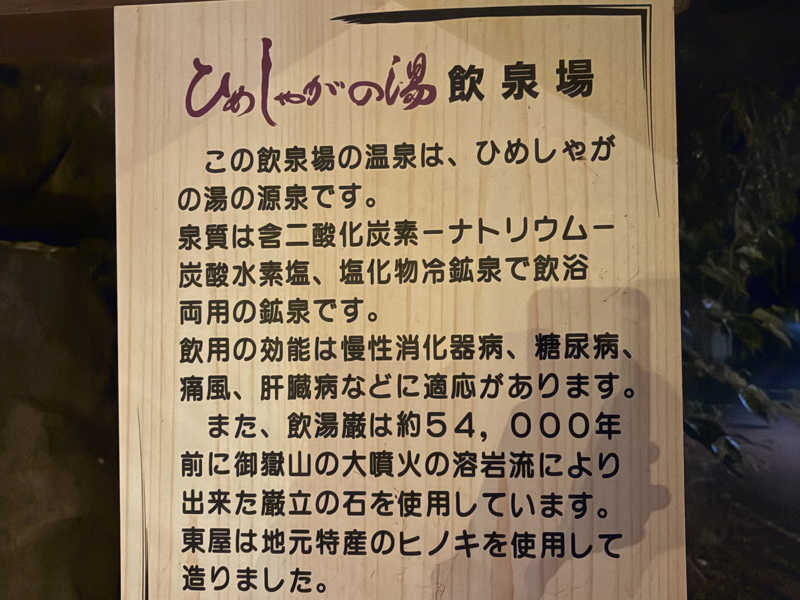 ひめしゃがの湯 飲泉場
この飲泉場の温泉は、ひめしゃが
の湯の源泉です。
泉質は含二酸化炭素ーナトリウムー
炭酸水素塩、塩化物冷鉱泉で飲浴
両用の鉱泉です。
飲用の効能は慢性消化器病、糖尿病、
痛風、肝臓病などに適応があります。
また、飲湯巌は約54，000年
前に御嶽山の大噴火の溶岩流により
出来た巌立の石を使用しています。
東屋は地元特産のヒノキを使用して
造りました。